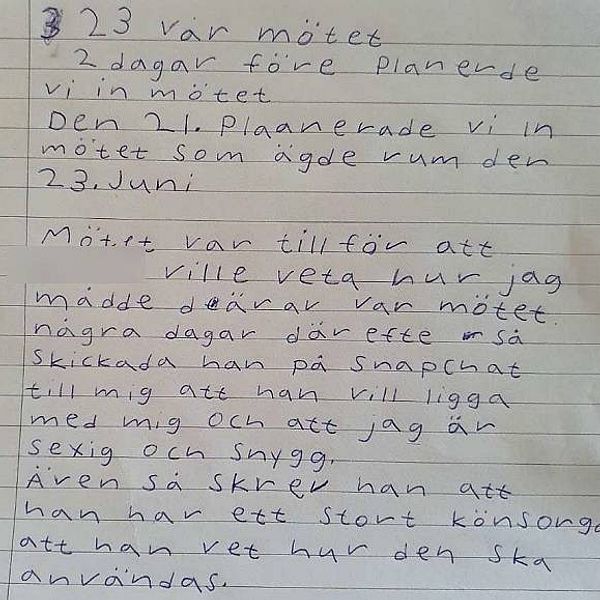 23 var mötet
2 dagar före planerde
vi in mötet
Den 21. Plaanerade vi in
mötet som ägde rum den
23. Juni
Mötet var till för att
ville veta hur jag
mådde därar var mötet.
några dagar där efte så
skickada han på snapchat
till mig att han vill ligga
med mig och att jag är
sexig och snygg.
Även så skrev han att
han har ett stort könsorga
att han vet hur den ska
användas.